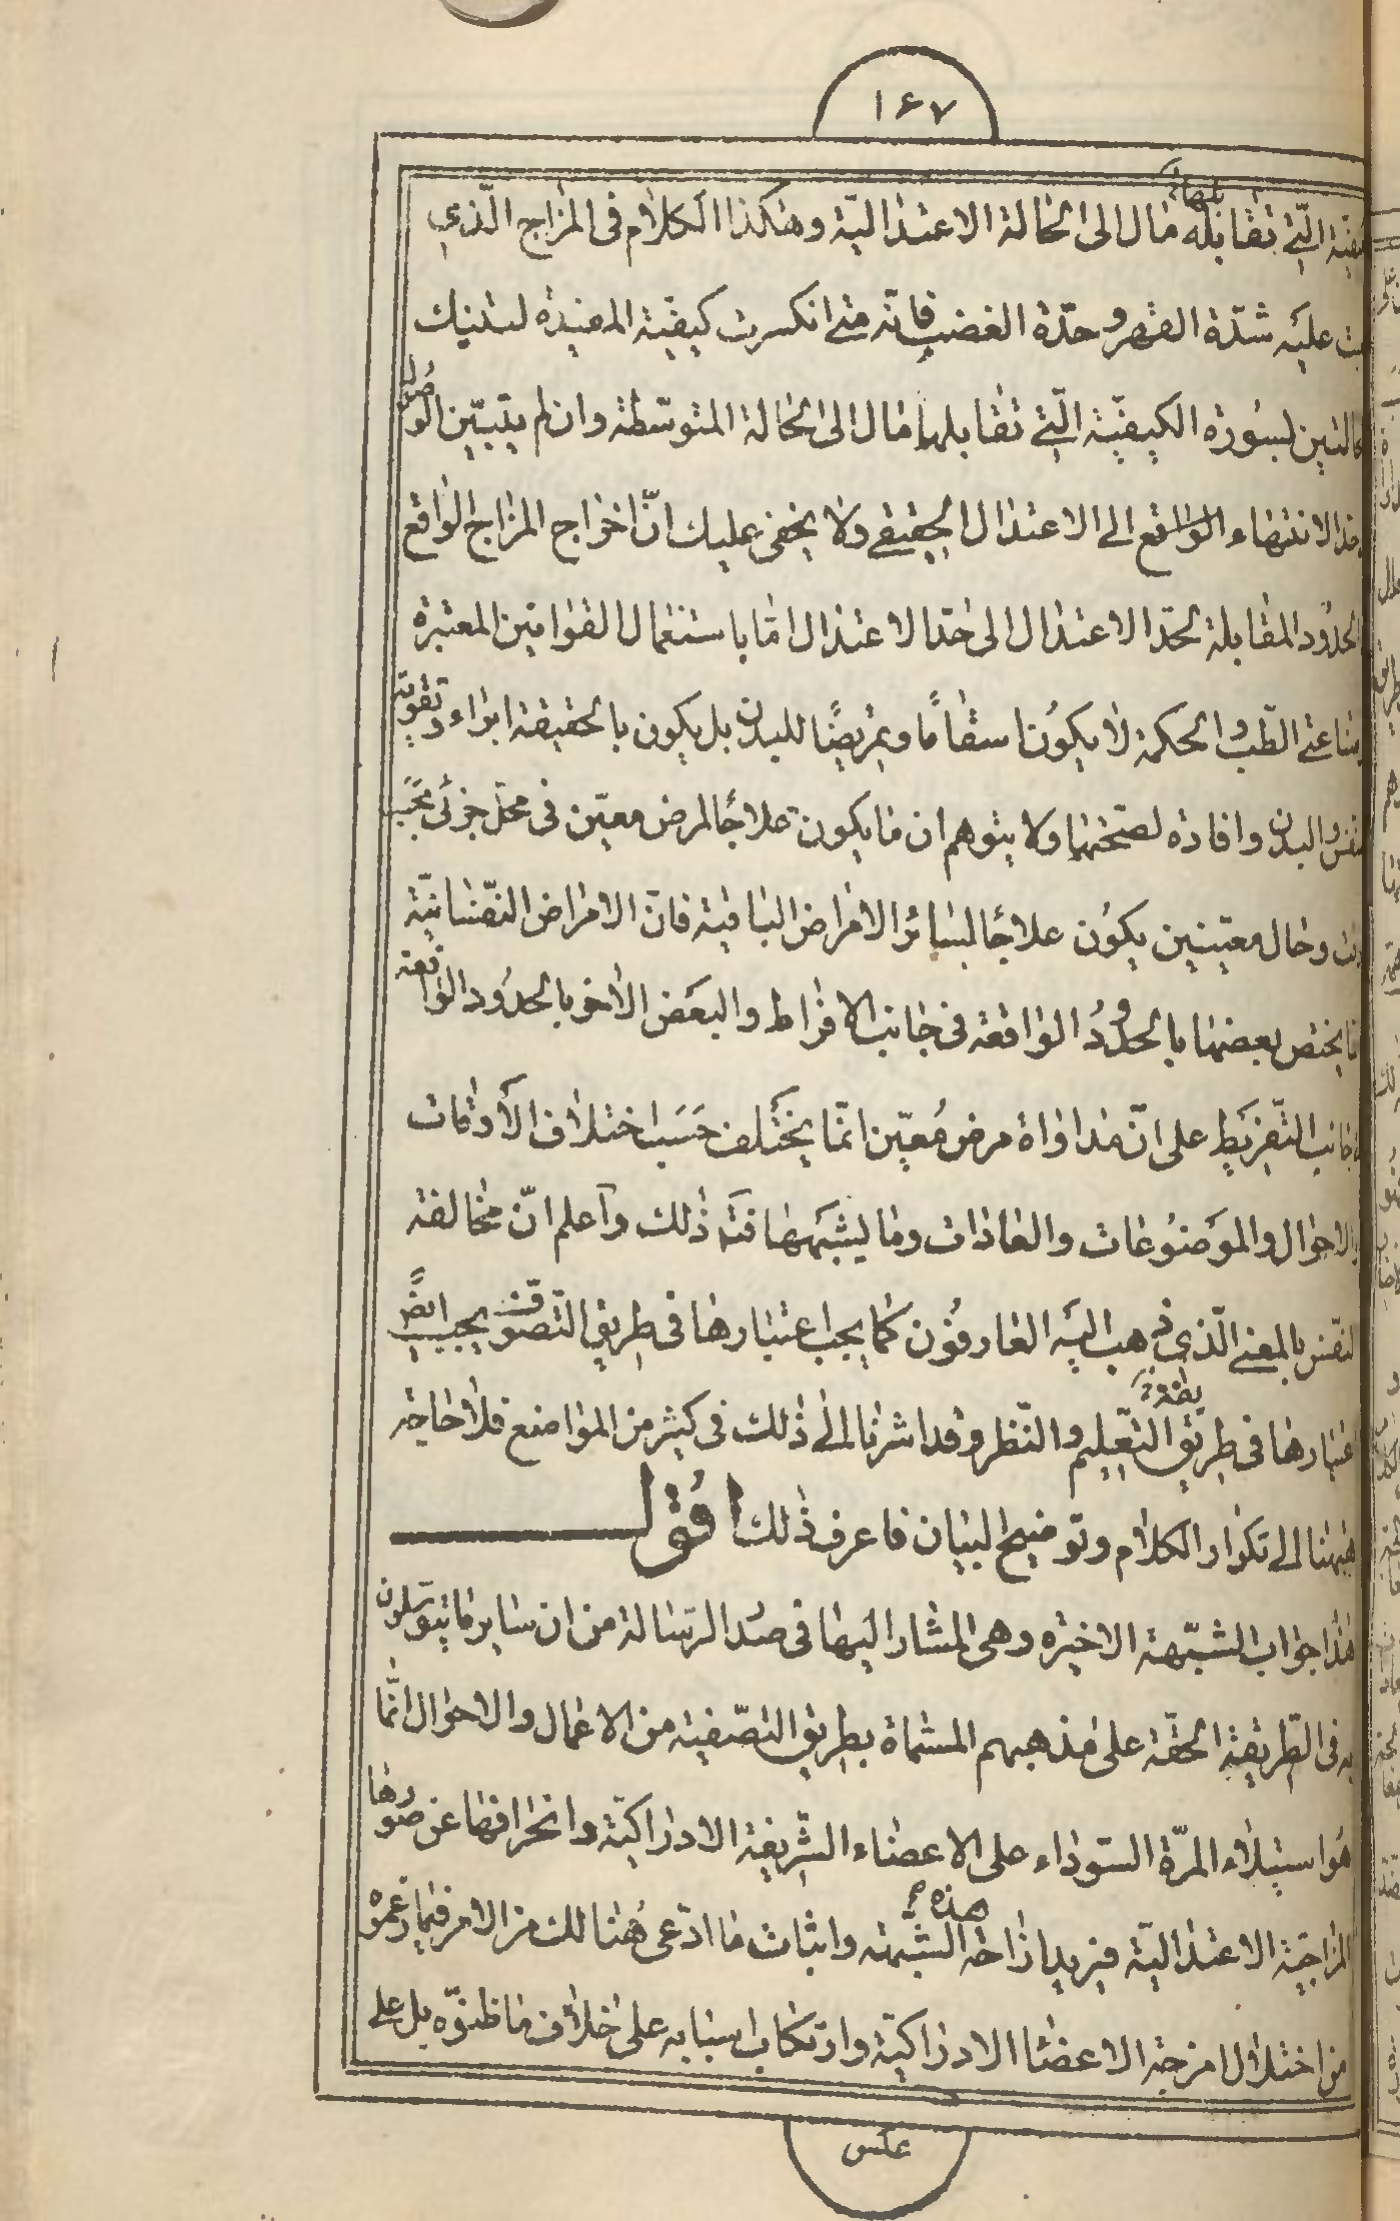 ۱۶۷
الّتی تقابله مال الی الحالة الاعتدالیّة وهکذا الکلام فی المزاج الّذی
علیه شدّة القهر وحدّة الغضب فانّه متی انکسرت کیفیّة المفیدة لتینک
الحالتین بسورة الکیفیّة الّتی تقابلها مال الی الحالة المتوسّطة وان لم یتبیّن الوصول
الانتهاء الواقع الی الاعتدال الحقیقی ولا یخفی علیک انّ اخراج المزاج الواقع
الحدود المقابلة لحدّ الاعتدال الی حدّ الاعتدال امّا باستعمال القوانین المعتبرة
صناعتی الطّب والحکمة لا یکون اسقاما وتمریضا للبدن بل یکون بالحقیقة ابراء وتقویة
النفس والبدن وافادة لصحّتهما ولا یتوهم ان ما یکون علاجا لمرض معیّن فی محلّ جزئی بحسب
وحال معیّنین یکون علاجا لسائر الامراض الباقیة فانّ الامراض النفسانیّة
یختص بعضها بالحدود الواقعة فی جانب الافراط والبعض الاخر بالحدود الواقعة
جانب التّفریط علی انّ مداواة مرض معیّن انّما یختلف حسب اختلاف الاوقات
والاحوال والموضوعات والعادات وما یشبهها فتمّ ذلک واعلم انّ مخالفة
النفس بالمعنی الّذی ذهب الیه العارفون کما یجب اعتبارها فی طریق التّصوّف یجب ایضً
اعتبارها فی طریق التعلیم والنّظر وقد اشرنا الی ذلک فی کثیر من المواضع فلا حاجة
هیهنا الی تکرار الکلام وتوضیح البیان فاعرف ذلک اقول
هذا جواب الشبهة الاخیره وهی المشار الیها فی صدر الرّسالة من ان سایر ما یتوسّلون
به فی الطّریقة الحقّة علی مذهبهم المسمّاة بطریق التصفیة من الاعمال والاحوال انّما
هو استیلاء المرّة السّوداء علی الاعضاء الشّریفة الادراکیّة وانحرافها عن صورها
المزاجیّة الاعتدالیّة فیرید ازاحة هذه الشّبهة واثبات ما ادّعی هنالک من الامر فیما زعموه
من اختلال امزجة الاعضا الادراکیّة وارتکاب اسبابه علی خلاف ما ظنّوه بل علی
عکس